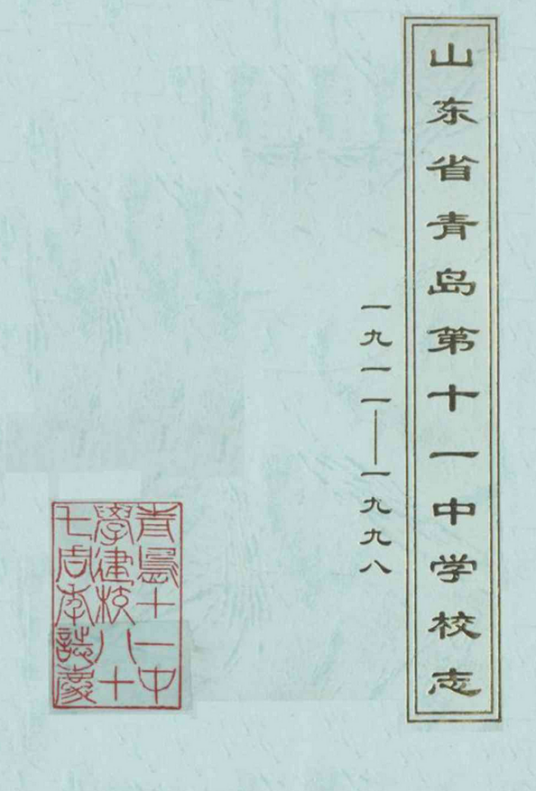 山东省青岛第十一中学校志
一九一一—一九九八
青島十一中
學建校八十
七周年誌慶